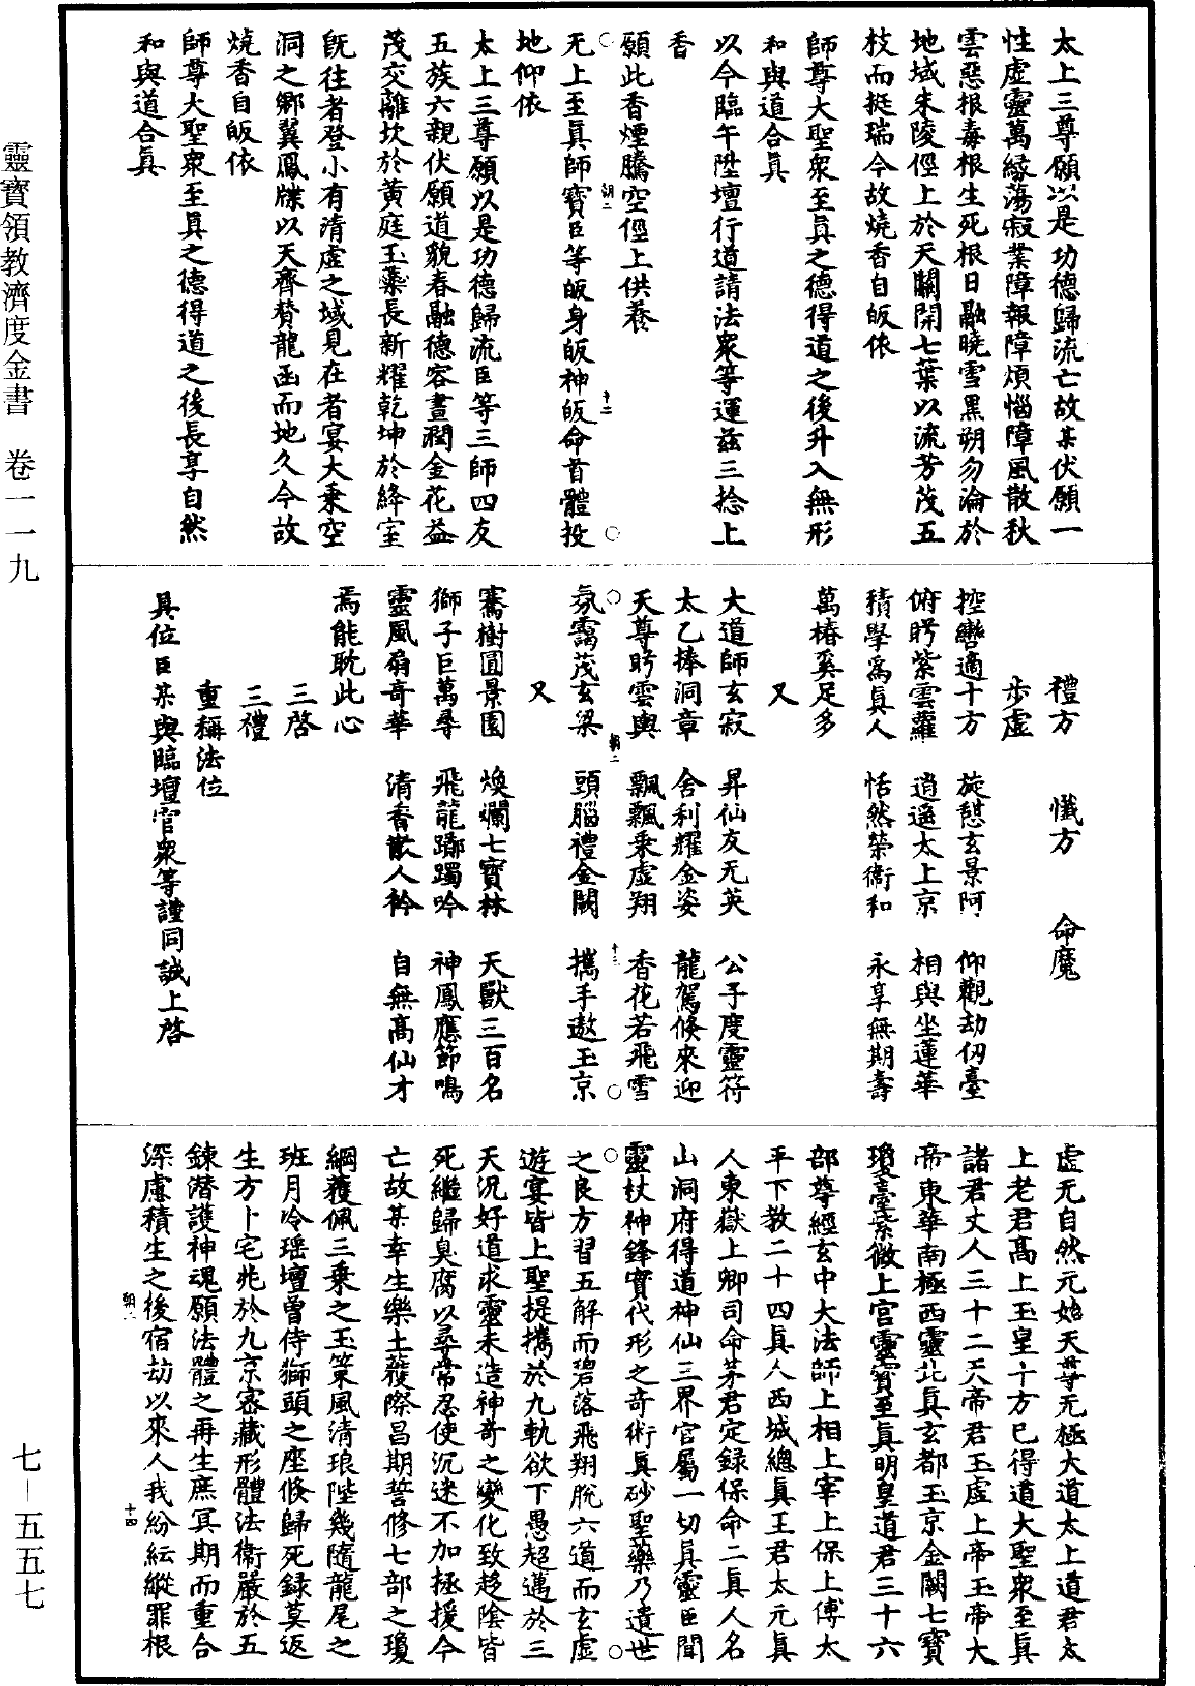 靈寶領教濟度金書　卷一一九
太上三尊願以是功德歸流亡故某伏願一
性虛靈萬緣蕩寂業障報障煩惱障風散秋
雲惡根毒根生死根日融曉雪黑朔勿淪於
地域朱陵徑上於天關開七葉以流芳茂五
枝而挺瑞今故燒香自皈依
師尊大聖衆至眞之德得道之後升入無形
和與道合眞
以今臨午陞壇行道請法衆等運玆三捻上
香
願此香煙騰空徑上供養
无上至眞師寶臣等皈身皈神皈命首體投
地仰依
太上三尊願以是功德歸流臣等三師四友
五族六親伏願道貌春融德容晝潤金花益
茂交離坎於黄庭玉蘂長新耀乾坤於絳室
旣往者登小有清虛之域見在者宴大乘空
洞之鄉翼鳳牒以天齊賛龍函而地久今故
燒香自皈依
師尊大聖衆至眞之德得道之後長享自然
和與道合眞
朝二
十二
禮方　懺方　命魔
步虛
控轡適十方　旋憇玄景阿　仰觀劫仞臺
俯眄紫雲羅　逍遥太上京　相與坐蓮華
積學爲眞人　恬然榮衞和　永享無期壽
萬椿奚足多
又
大道師玄寂　昇仙友无英　公子度靈符
太乙捧洞章　舍利耀金姿　龍駕倐來迎
天尊眄雲輿　飄飄乘虛翔　香花若飛雪
氛靄茂玄梁　頭腦禮金闕　攜手遨玉京
又
騫樹圓景園　煥爛七寶林　天獸三百名
獅子巨萬尋　飛龍躑躅吟　神鳳應節鳴
靈風扇奇華　清香散人衿　自無高仙才
焉能耽此心
三啓
三禮
重稱法位
具位臣某與臨壇官衆等謹同誠上啓
朝二
十三
虛无自然元始天尊无極大道太上道君太
上老君高上玉皇十方已得道大聖衆至眞
諸君丈人三十二天帝君玉虛上帝玉帝大
帝東華南極西靈北眞玄都玉京金闕七寶
瓊臺紫微上宫靈寶至眞明皇道君三十六
部尊經玄中大法師上相上宰上保上傅太
平下教二十四眞人西城總眞王君太元眞
人東嶽上卿司命茅君定錄保命二眞人名
山洞府得道神仙三界官屬一切眞靈臣聞
靈杖神鋒實代形之奇術眞砂聖藥乃遺世
之良方習五解而碧落飛翔脫六道而玄虛
遊宴皆上聖提攜於九軌欲下愚超邁於三
天況好道求靈未造神奇之變化致趍陰皆
死繼歸臭腐以尋常忍使沉迷不加拯援今
亡故某幸生樂土蘐際昌期誓修七部之瓊
綱蘐佩三乘之玉筞風清琅陛幾隨龍尾之
班月冷瑶壇曾侍獅頭之座倐歸死録莫返
生方卜宅兆於九京宻藏形體法衞嚴於五
鍊潛護神魂願法體之再生庶冥期而重合
深慮積生之後宿劫以來人我紛紜縱罪根
朝二
十四
七－五五七